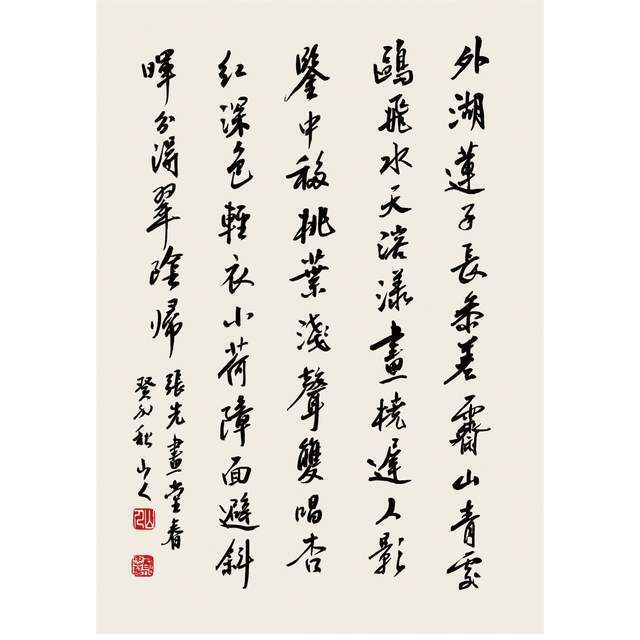 外湖蓮子長參差霽山青處
鷗飛水天溶漾畫橈遲人影
鑒中移桃葉淺聲雙唱杏
紅深色輕衣小荷障面避斜
暉分得翠陰歸
張先畫堂春
癸卯秋山人